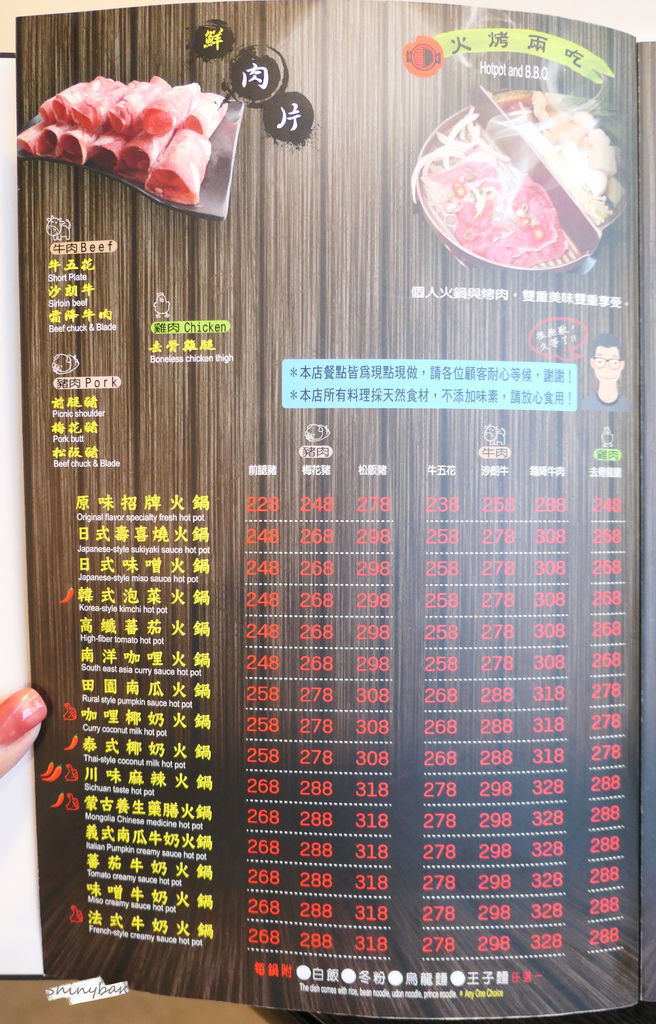 鮮
肉
片
火烤兩吃
Hotpot and B.B.Q
牛肉 Beef
牛五花
Short Plate
沙朗牛
Sirloin beef
霜降牛肉
Beef chuck & Blade
雞肉 Chicken
去骨雞腿
Boneless chicken thigh
豬肉 Pork
前腿豬
Picnic shoulder
梅花豬
Pork butt
松阪豬
Beef chuck & Blade
個人火鍋與烤肉，雙重美味雙重享受。
*本店餐點皆為現點現做，請各位顧客耐心等候，謝謝！
*本店所有料理採天然食材，不添加味素，請放心食用！
豬肉 牛肉 雞肉
前腿豬 梅花豬 松阪豬 牛五花 沙朗牛 霜降牛肉 去骨雞腿
原味招牌火鍋 228 248 278 238 258 288 248
Original flavor specialty fresh hot pot
日式壽喜燒火鍋 248 268 298 258 278 308 268
Japanese-style sukiyaki sauce hot pot
日式味噌火鍋 248 268 298 258 278 308 268
Japanese-style miso sauce hot pot
韓式泡菜火鍋 248 268 298 258 278 308 268
Korea-style kimchi hot pot
高纖蕃茄火鍋 248 268 298 258 278 308 268
High-fiber tomato hot pot
南洋咖哩火鍋 248 268 298 258 278 308 268
South east asia curry sauce hot pot
田園南瓜火鍋 258 278 308 268 288 318 278
Rural style pumpkin sauce hot pot
咖哩椰奶火鍋 258 278 308 268 288 318 278
Curry coconut milk hot pot
泰式椰奶火鍋 258 278 308 268 288 318 278
Thai-style coconut milk hot pot
川味麻辣火鍋 268 288 318 278 298 328 288
Sichuan taste hot pot
蒙古養生藥膳火鍋 268 288 318 278 298 328 288
Mongolia Chinese medicine hot pot
義式南瓜牛奶火鍋 268 288 318 278 298 328 288
Italian Pumpkin creamy sauce hot pot
蕃茄牛奶火鍋 268 288 318 278 298 328 288
Tomato creamy sauce hot pot
味噌牛奶火鍋 268 288 318 278 298 328 288
Miso creamy sauce hot pot
法式牛奶火鍋 268 288 318 278 298 328 288
French-style creamy sauce hot pot
每鍋附 ●白飯●冬粉●烏龍麵●王子麵 任選一
The dish comes with rice, bean noodle, udon noodle, prince noodle. * Any One Choice
shinyban